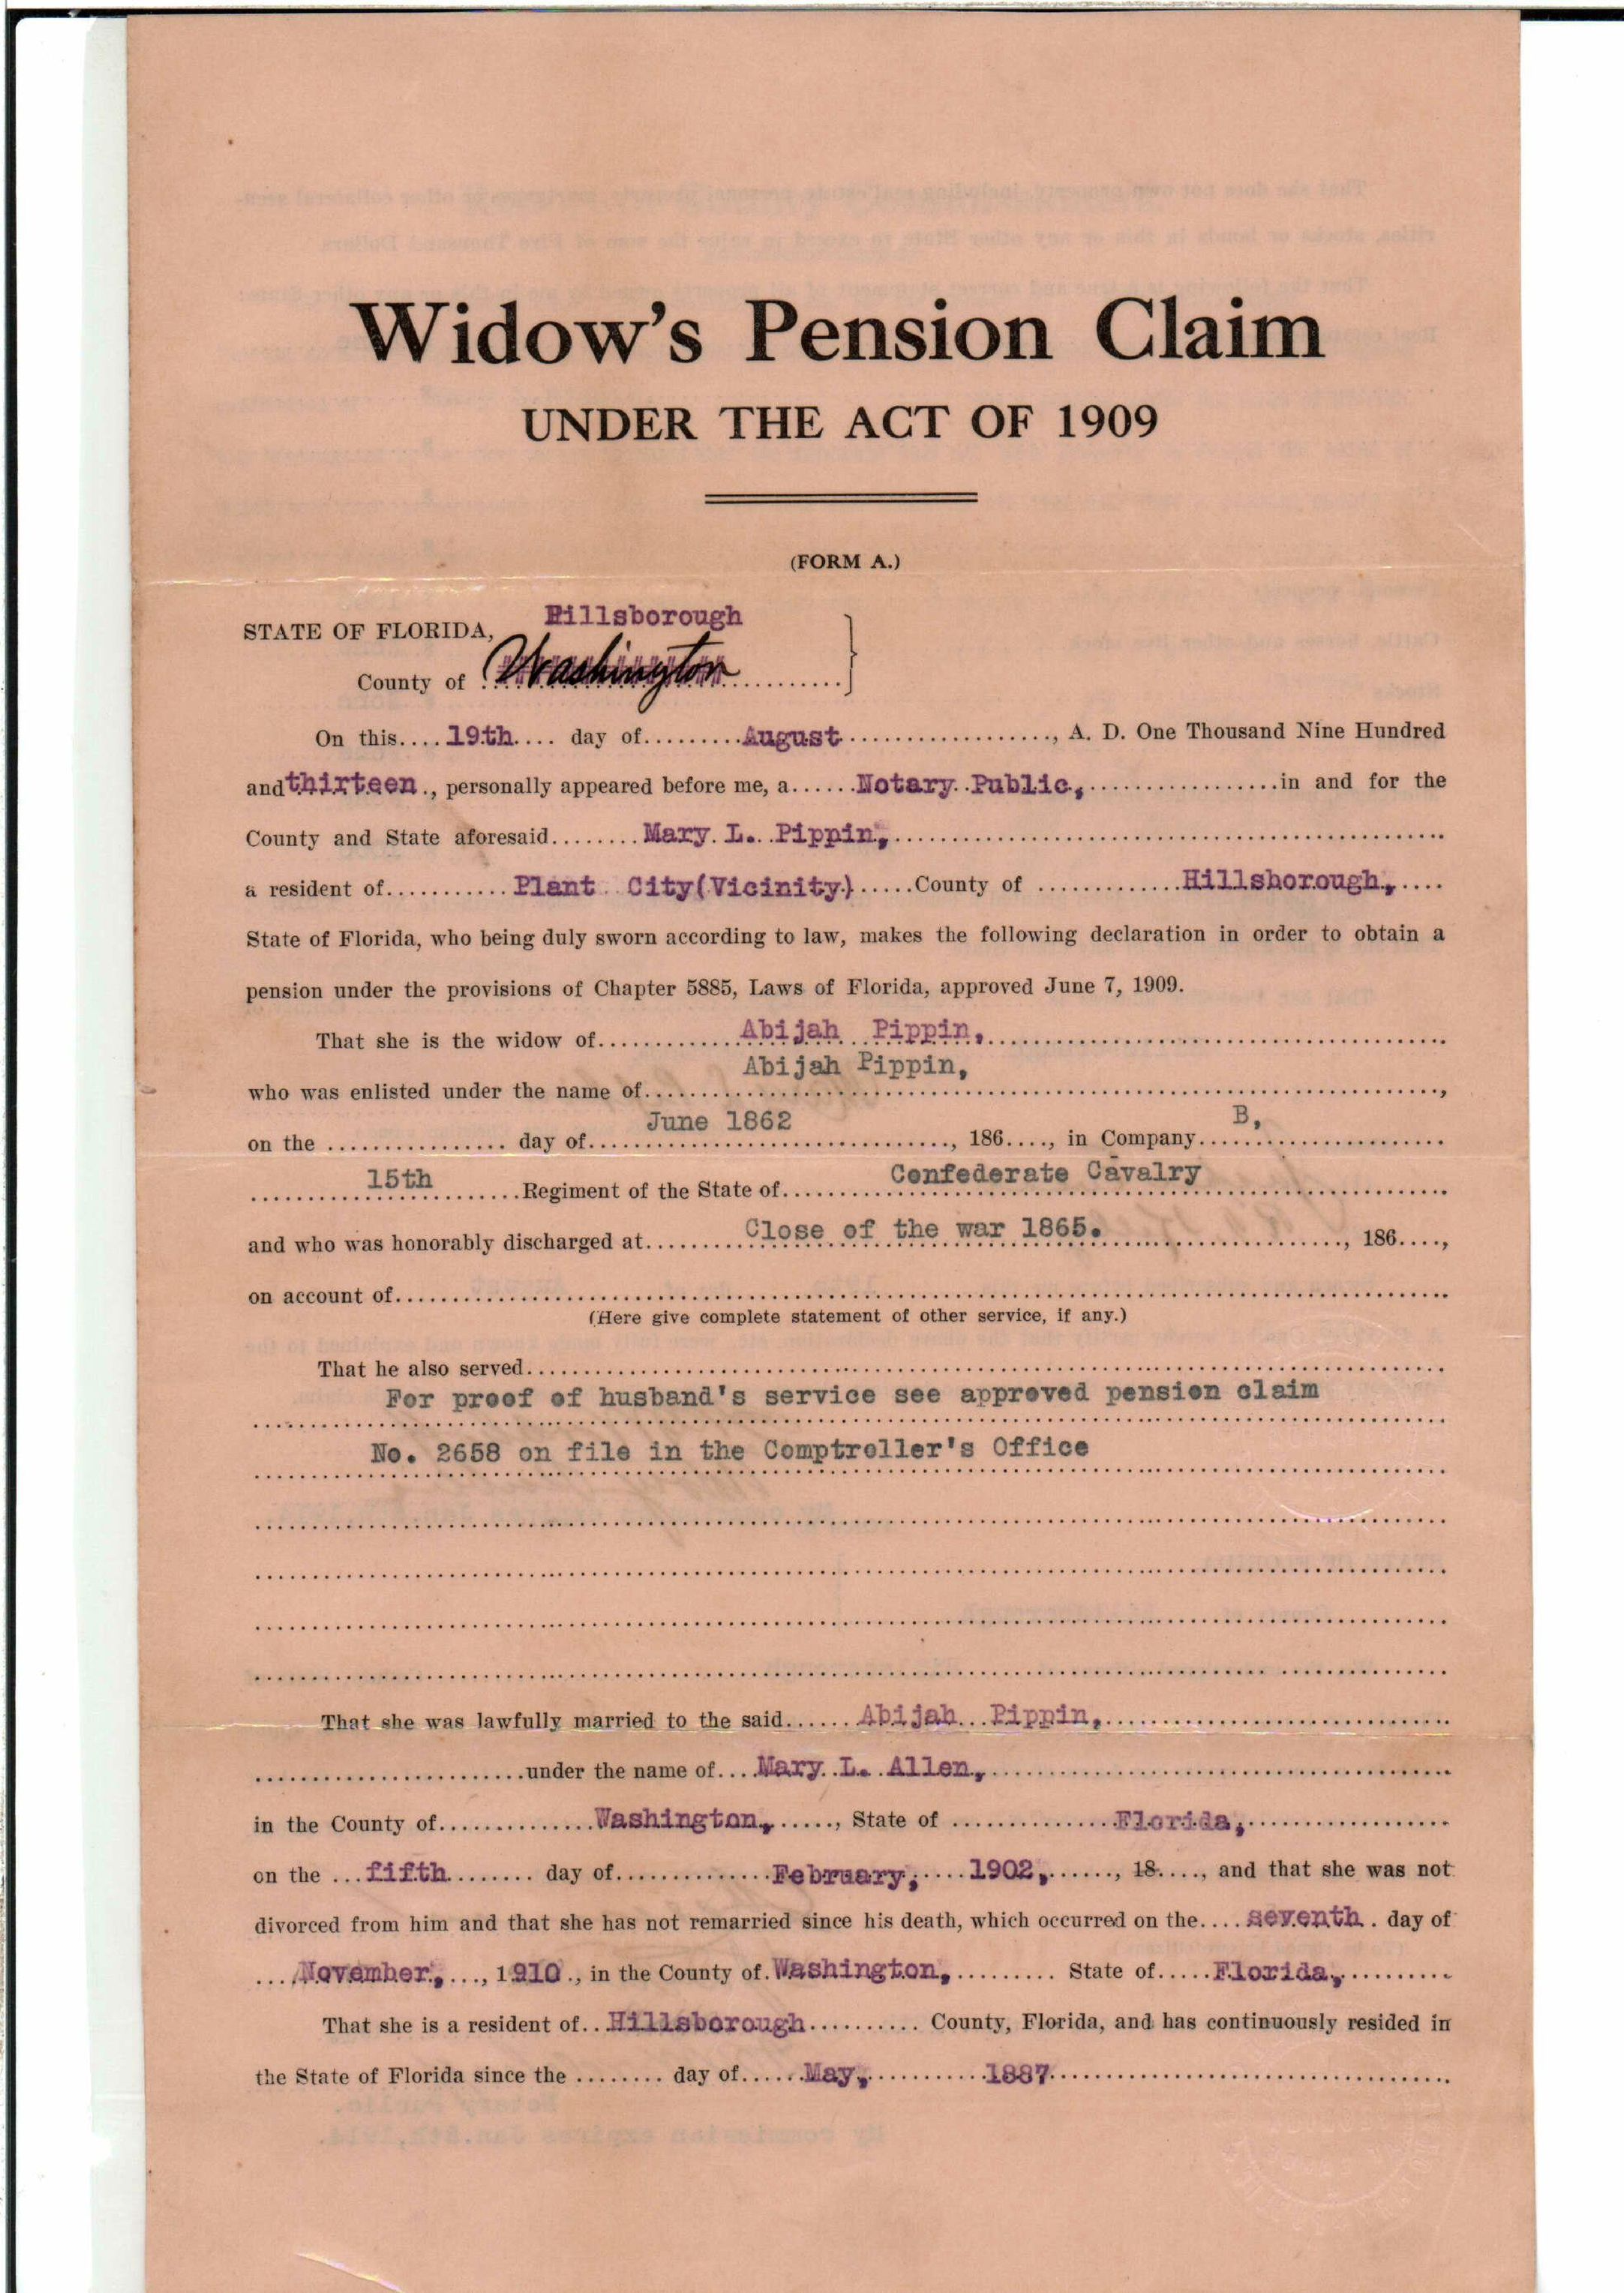 Widow's Pension Claim
UNDER THE ACT OF 1909
(FORM A.)
Hillsborough
STATE OF FLORIDA,
County of Washington
On this 19th day of August, A. D. One Thousand Nine Hundred
and thirteen, personally appeared before me, a Notary Public, in and for the
County and State aforesaid Mary L. Pippin,
a resident of Plant City(Vicinity) County of Hillsborough,
State of Florida, who being duly sworn according to law, makes the following declaration in order to obtain a
pension under the provisions of Chapter 5885, Laws of Florida, approved June 7, 1909.
That she is the widow of Abijah Pippin,
Abijah Pippin,
who was enlisted under the name of,
June 1862 B,
on the day of, 186, in Company
15th Confederate Cavalry
Regiment of the State of
Close of the war 1865.
and who was honorably discharged at, 186,
on account of
(Here give complete statement of other service, if any.)
That he also served
For proof of husband's service see approved pension claim
No. 2658 on file in the Comptroller's Office
That she was lawfully married to the said Abijah Pippin,
under the name of Mary L. Allen,
in the County of Washington, , State of Florida,
on the fifth day of February, 1902, , 18, and that she was not
divorced from him and that she has not remarried since his death, which occurred on the seventh day of
November, , 1910, in the County of Washington, State of Florida,
That she is a resident of Hillsborough County, Florida, and has continuously resided in
the State of Florida since the day of May, 1887
Notary Public.
My commission expires Jan.8th,1914.